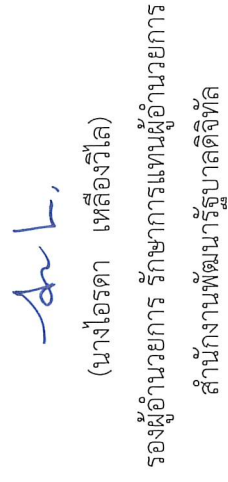 (นางไอรดา เหลืองวิไล)
รองผู้อำนวยการ รักษาการแทนผู้อำนวยการ
สำนักงานพัฒนารัฐบาลดิจิทัล